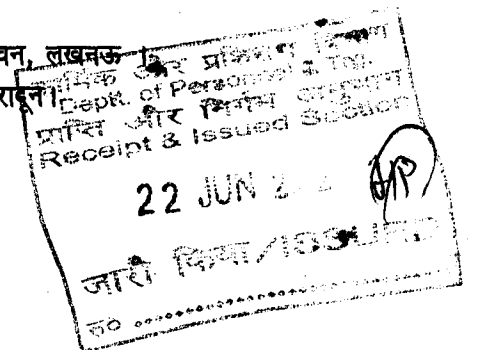 वन, लखनऊ ।
रादून।
कार्मिक और प्रशिक्षण विभाग
Deptt. of Personnel & Trg.
प्राप्ति और निर्गम अनुभाग
Receipt & Issued Section
22 JUN
जारी किया/ISSUED
सं०